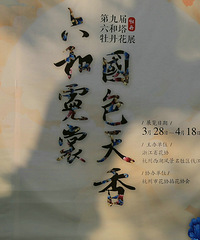 第九届
六和塔
牡丹花展
杭州
六和霓裳
國色天香
展览日期
3月28日—4月18日
主办单位
浙江省花协
协办单位
杭州市花协插花协会